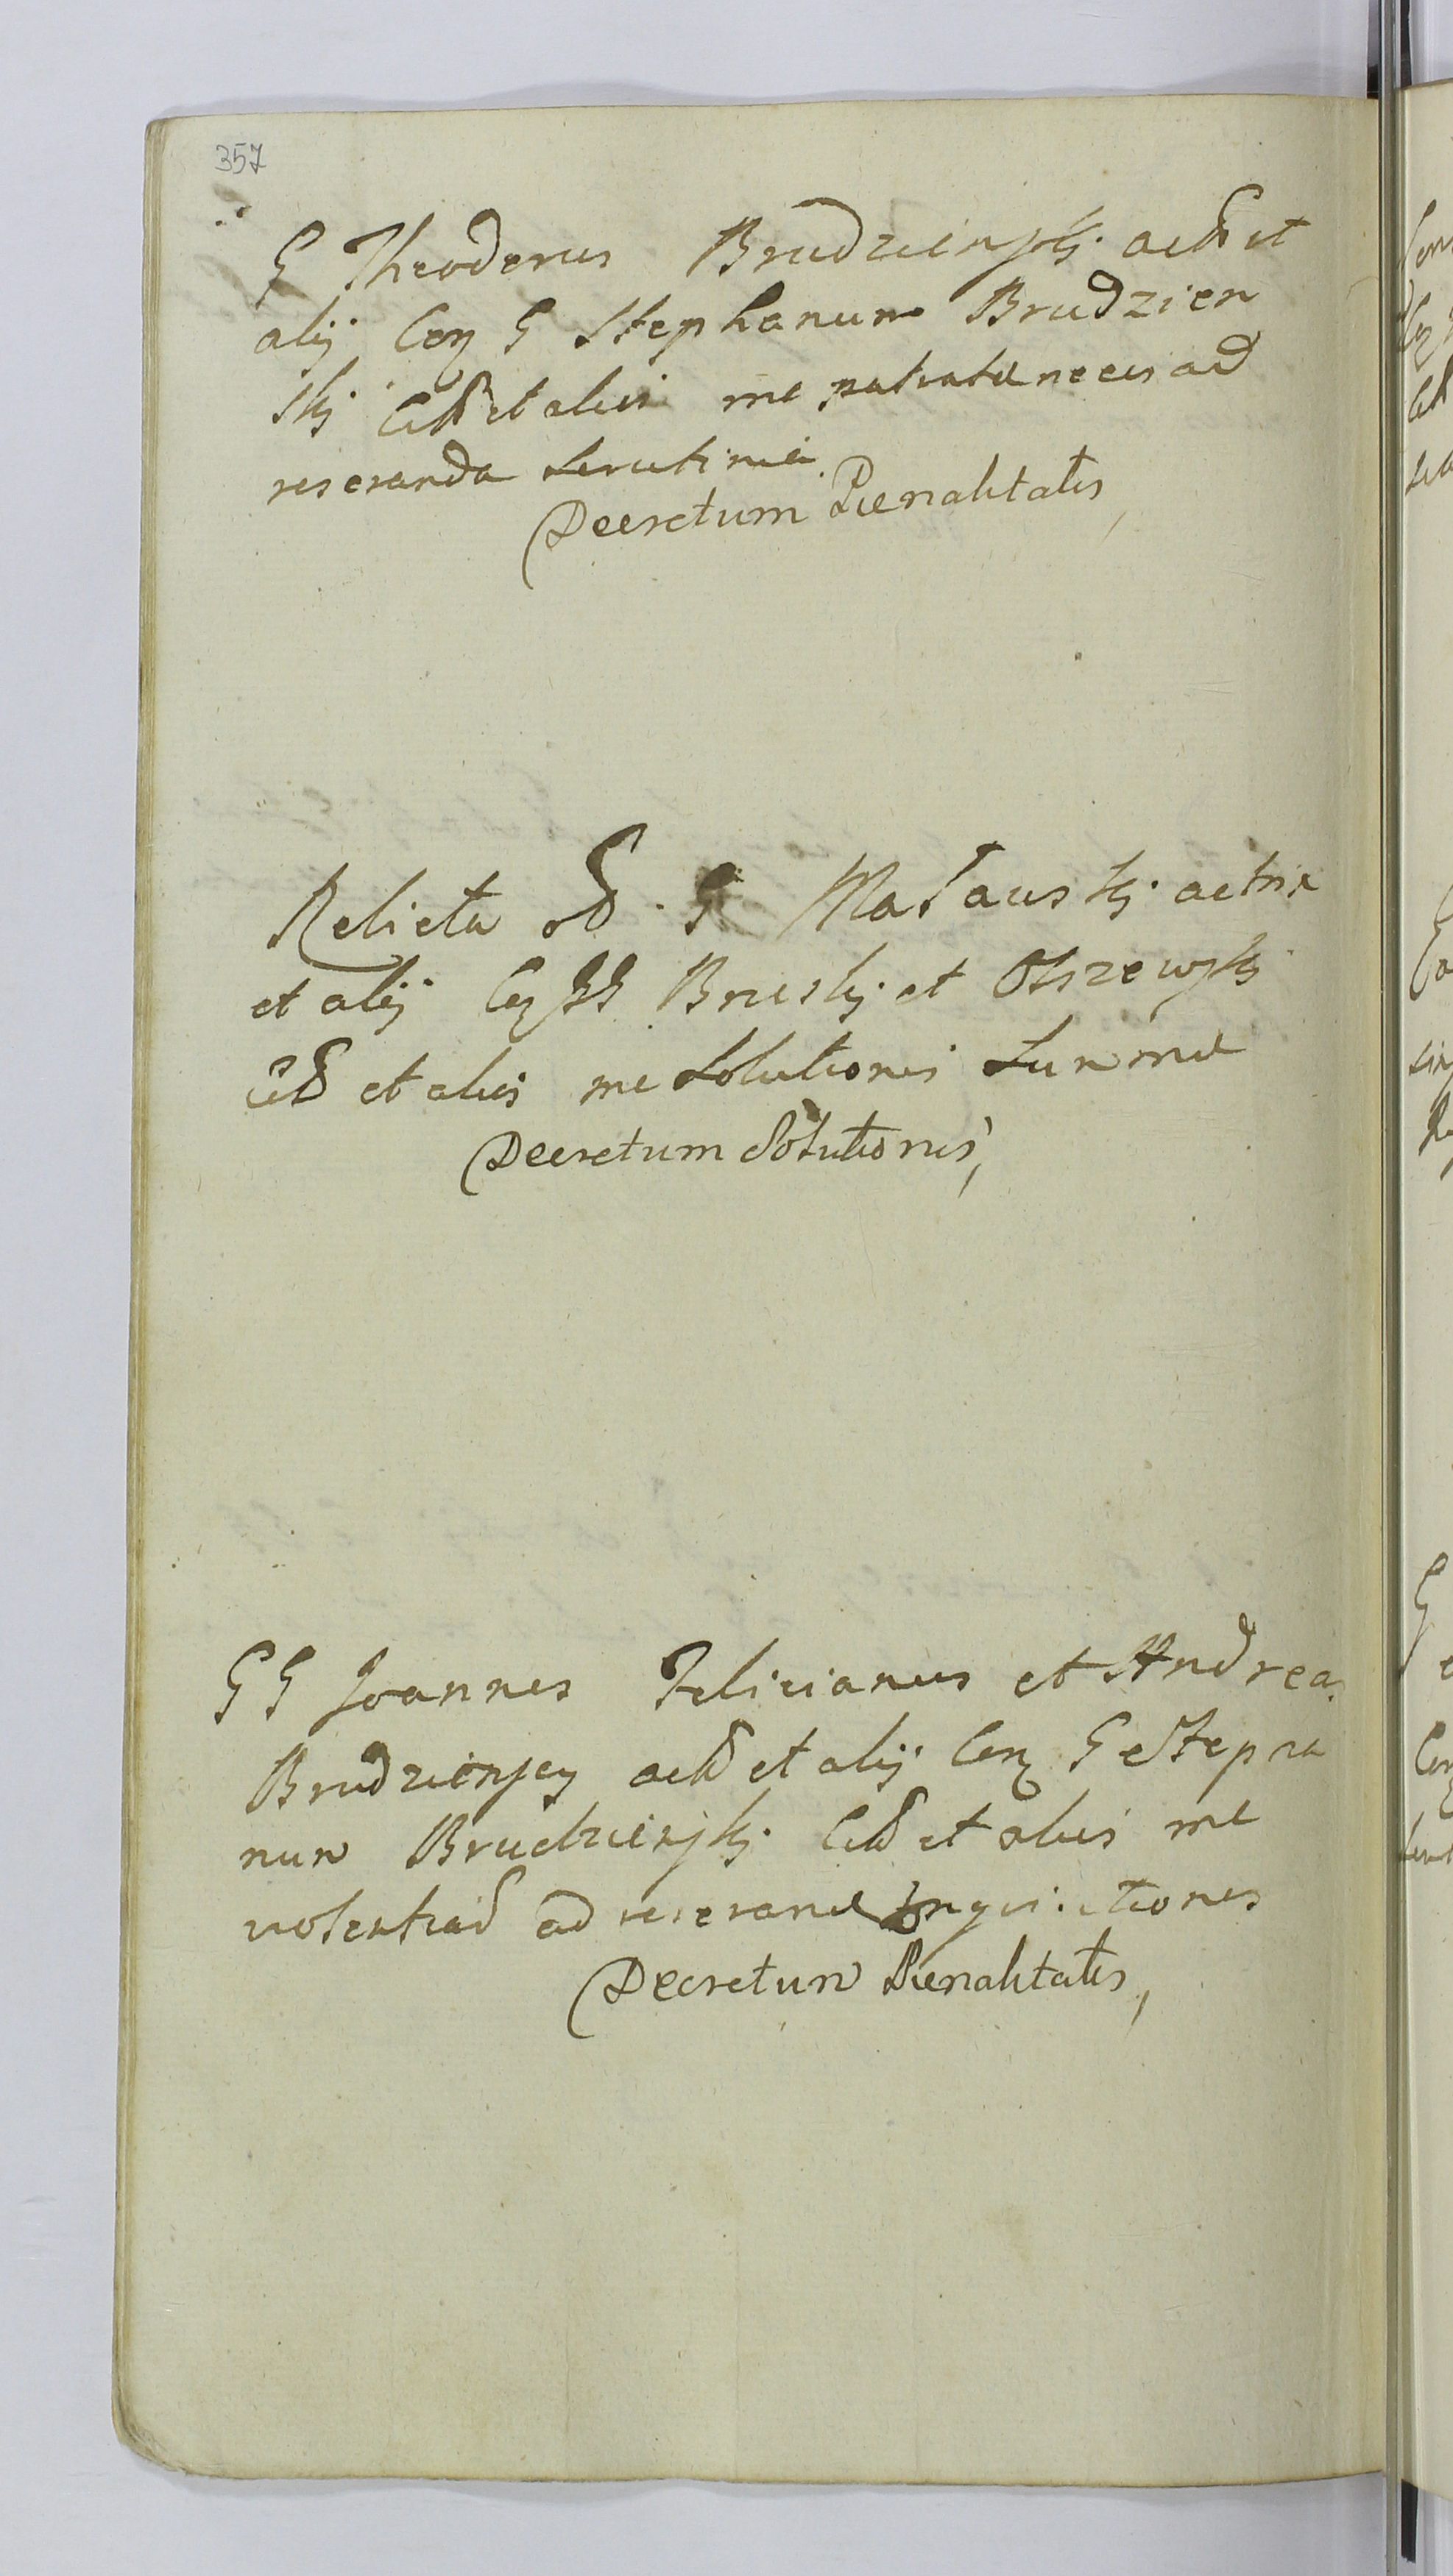 357
G Theodorus Brudzienskj act et
alij Con G Stephanum Brudzien
skj Citt et alios me patratæ necis ad
reseranda scrutinia
Decretum Pænalitatis,
Relicta G Madauskj actrix
et alij Con GG Bruskj et Olszewskj
Citt et alios me Solutionis Summæ
Decretum Solutionis,
GG Joannes Felicianus et Andreas
Brudzienscy act et alij Con G Stepha
num Brudzienskj Citt et alios me
ad reserand inquisitiones
Decretum Pænalitatis,